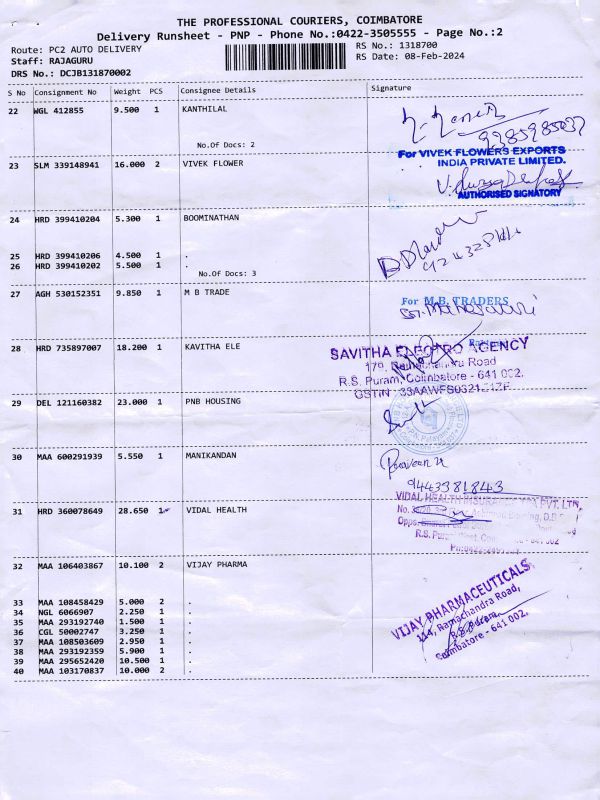 THE PROFESSIONAL COURIERS, COIMBATORE
Delivery Runsheet - PNP - Phone No.:0422-3505555 - Page No.:2
Route: PC2 AUTO DELIVERY
RS No.: 1318700
Staff: RAJAGURU
RS Date: 08-Feb-2024
DRS No.: DCJB131870002
S No Consignment No Weight PCS Consignee Details Signature
22 WGL 412855 9.500 1 KANTHILAL
No.Of Docs: 2
For VIVEK FLOWERS EXPORTS
INDIA PRIVATE LIMITED.
23 SLM 339148941 16.000 2 VIVEK FLOWER
AUTHORISED SIGNATORY
24 HRD 399410204 5.300 1 BOOMINATHAN
25 HRD 399410206 4.500 1 .
26 HRD 399410202 5.500 1 .
No.Of Docs: 3
27 AGH 530152351 9.850 1 M B TRADE
For M.B. TRADERS
28 HRD 735897007 18.200 1 KAVITHA ELE
SAVITHA ELECTRO AGENCY
179, Ramachandra Road
R.S. Puram, Coimbatore - 641 002.
29 DEL 121160382 23.000 1 PNB HOUSING
30 MAA 600291939 5.550 1 MANIKANDAN
Praveen
9443381843
31 HRD 360078649 28.650 1 VIDAL HEALTH
VIDAL HEALTH PVT. LTD.
32 MAA 106403867 10.100 2 VIJAY PHARMA
VIJAY PHARMACEUTICALS
114, Ramachandra Road,
R.S. Puram,
Coimbatore - 641 002.
33 MAA 108458429 5.000 2 .
34 NGL 6066907 2.250 1 .
35 MAA 293192740 1.500 1 .
36 CGL 50002747 3.250 1 .
37 MAA 108503609 2.950 1 .
38 MAA 293192359 5.900 1 .
39 MAA 295652420 10.500 1 .
40 MAA 103170837 10.000 2 .